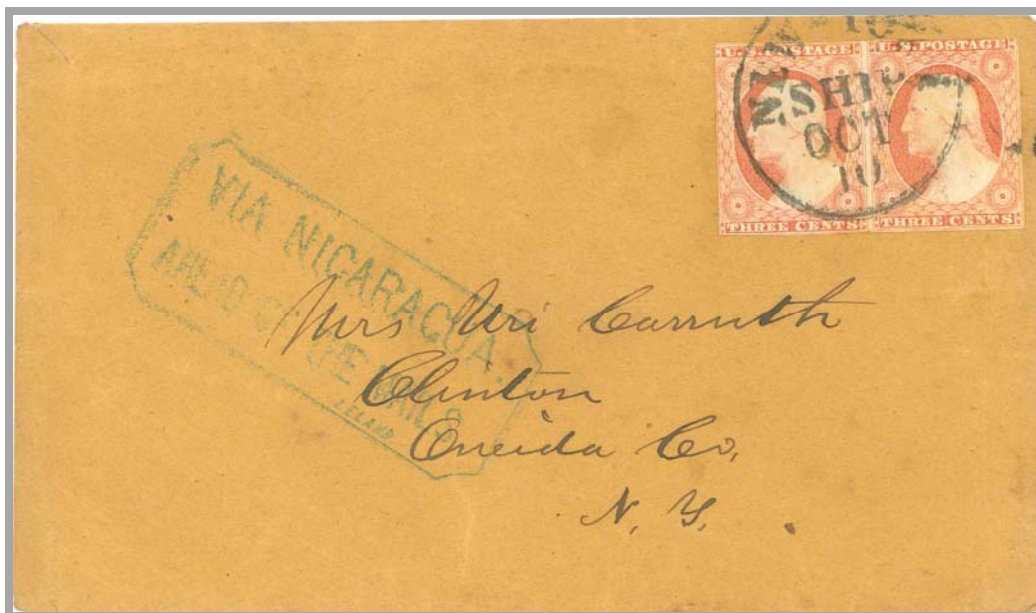 U.S. POSTAGE U.S. POSTAGE
NEW YORK
SHIP
OCT
10
THREE CENTS THREE CENTS
VIA NICARAGUA.
AHEAD OF THE MAILS.
LELAND
Mrs Uri Carruth
Clinton
Oneida Co,
N. Y.